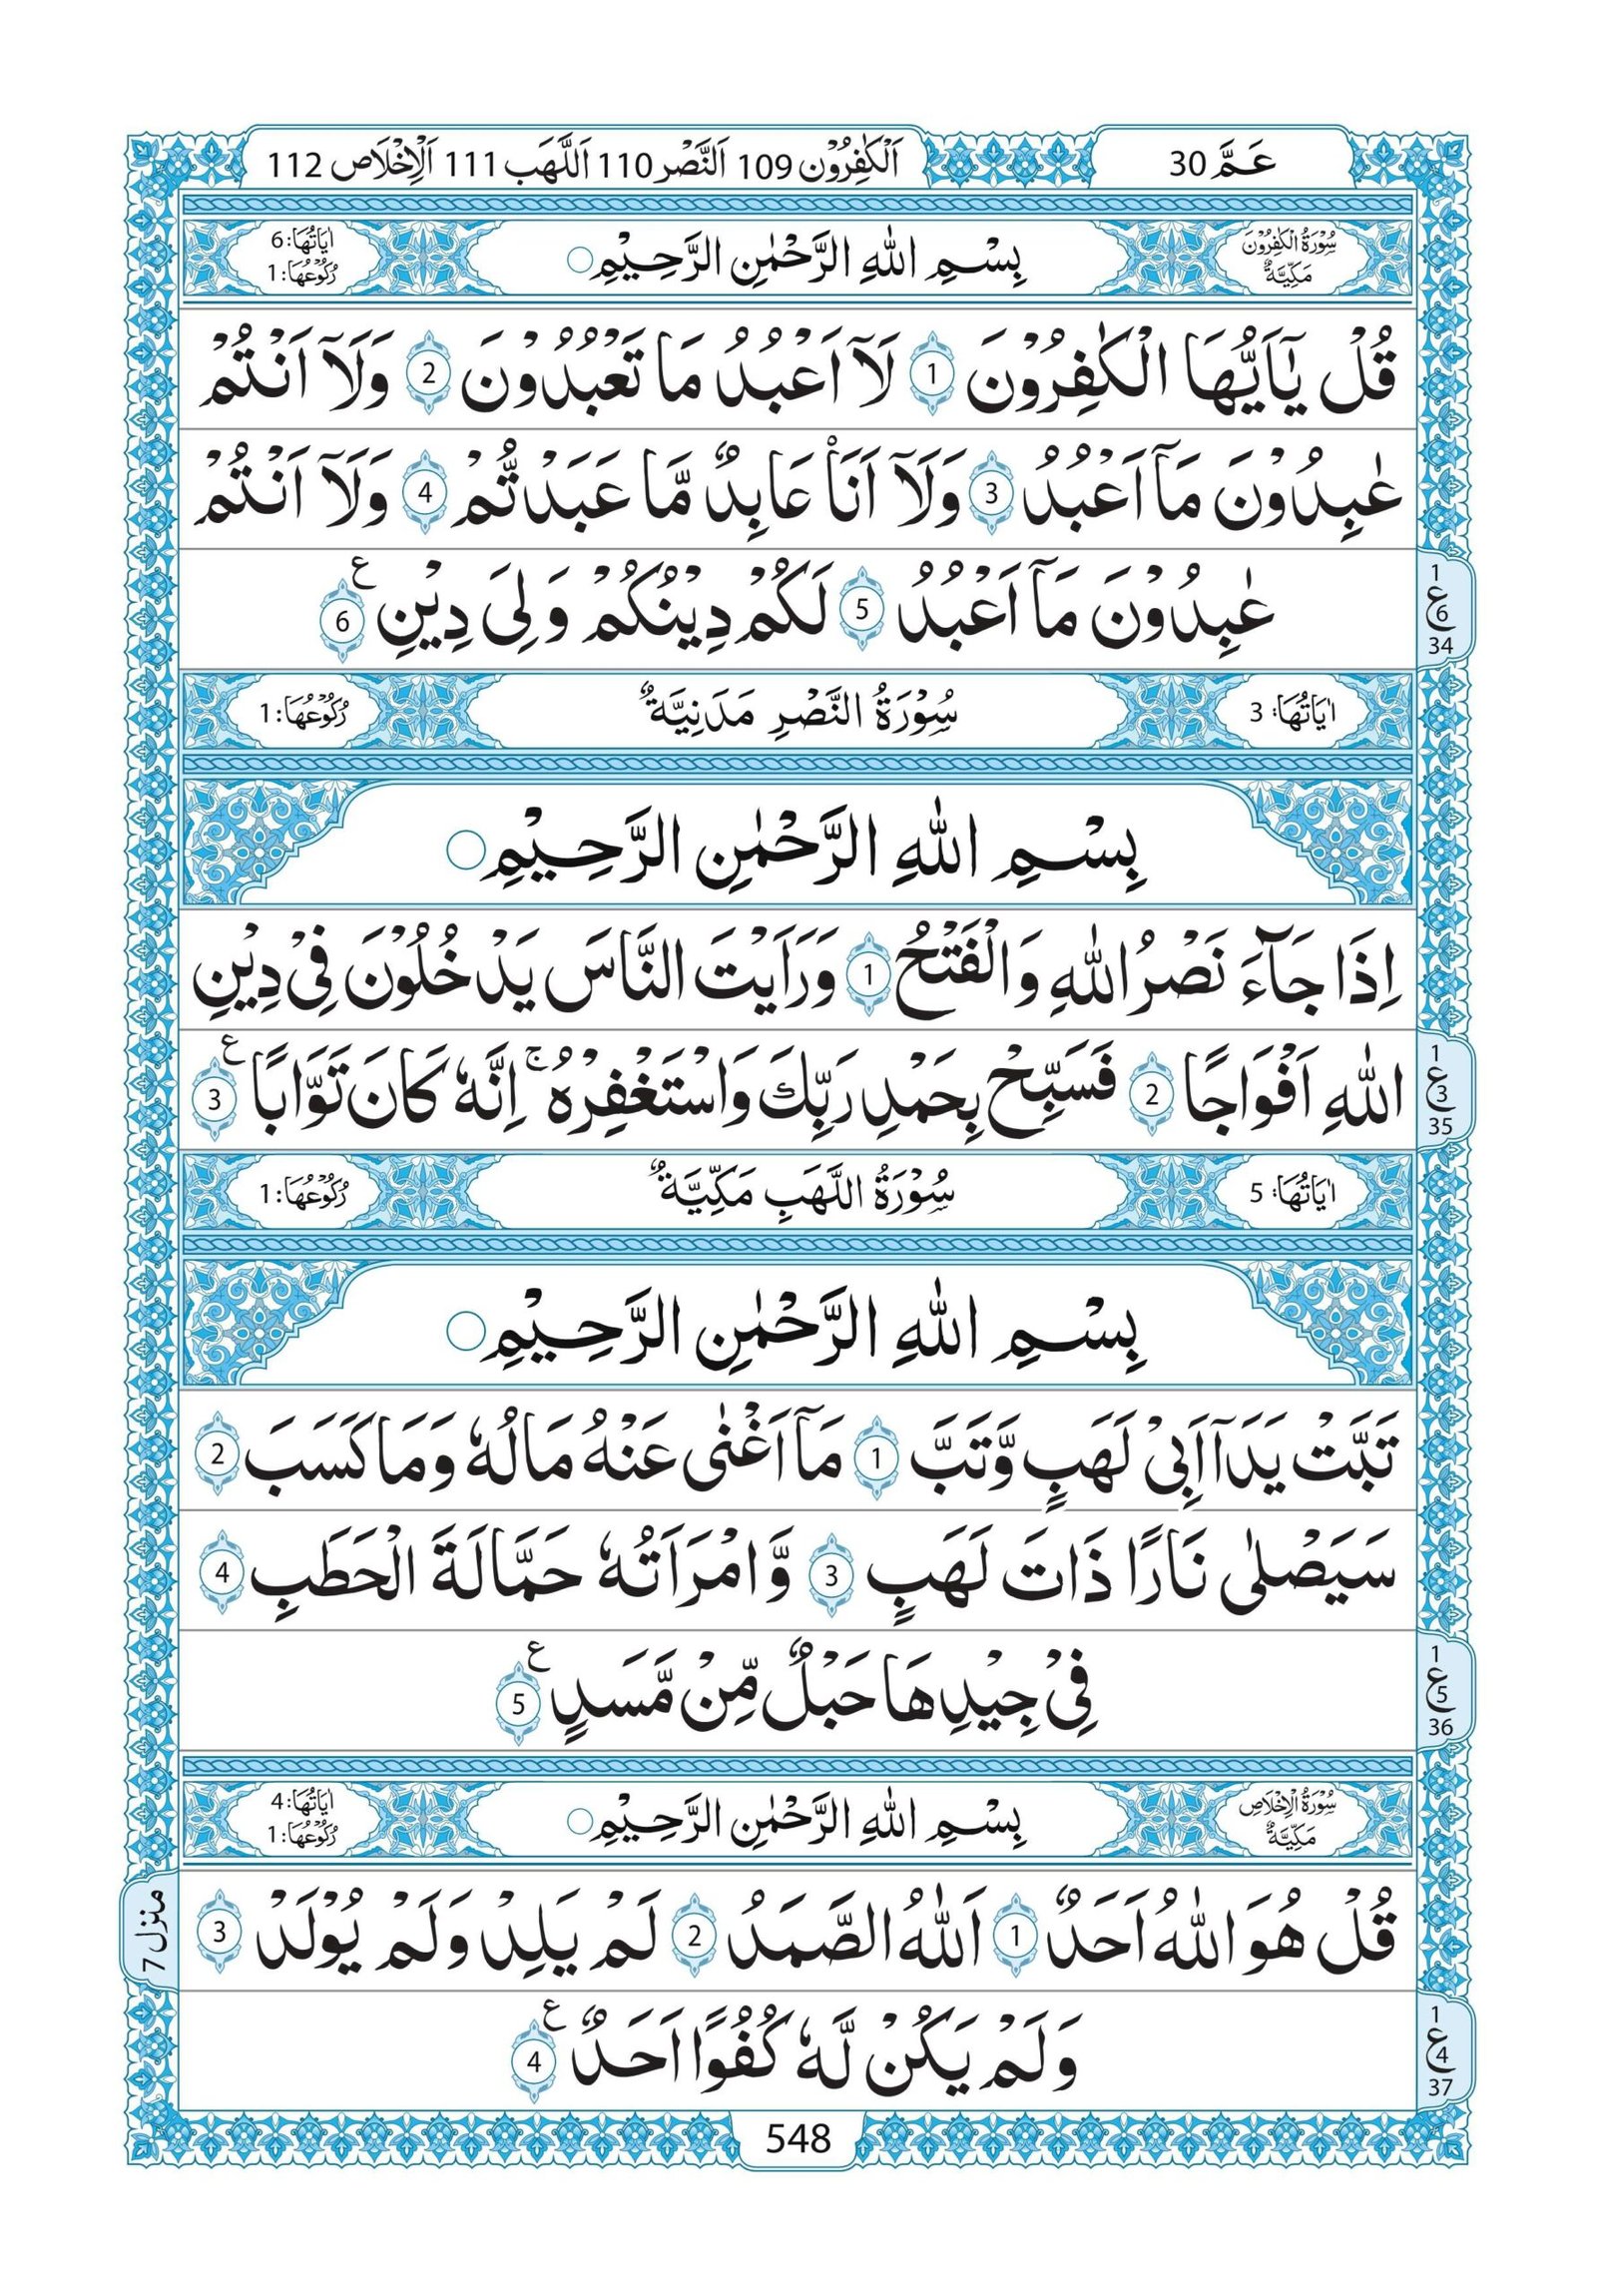 عَمَّ 30
اَلْكٰفِرُوْن 109 اَلنَّصْر 110 اَللَّهَب 111 اَلْاِخْلَاص 112
سُوْرَةُ الْكٰفِرُوْنَ
مَكِّيَّةٌ
بِسْمِ اللّٰهِ الرَّحْمٰنِ الرَّحِيْمِ○
اٰيَاتُهَا: 6
رُكُوْعُهَا: 1
قُلْ يٰٓاَيُّهَا الْكٰفِرُوْنَ 1 لَآ اَعْبُدُ مَا تَعْبُدُوْنَ 2 وَلَآ اَنْتُمْ
عٰبِدُوْنَ مَآ اَعْبُدُ 3 وَلَآ اَنَا۠ عَابِدٌ مَّا عَبَدْتُّمْ 4 وَلَآ اَنْتُمْ
عٰبِدُوْنَ مَآ اَعْبُدُ 5 لَكُمْ دِيْنُكُمْ وَلِىَ دِيْنِ ع 6
1
ع 6
34
اٰيَاتُهَا: 3 سُوْرَةُ النَّصْرِ مَدَنِيَّةٌ رُكُوْعُهَا: 1
بِسْمِ اللّٰهِ الرَّحْمٰنِ الرَّحِيْمِ○
اِذَا جَآءَ نَصْرُ اللّٰهِ وَالْفَتْحُ 1 وَرَاَيْتَ النَّاسَ يَدْخُلُوْنَ فِىْ دِيْنِ
اللّٰهِ اَفْوَاجًا 2 فَسَبِّحْ بِحَمْدِ رَبِّكَ وَاسْتَغْفِرْهُ ۚ اِنَّهٗ كَانَ تَوَّابًا ع 3
1
ع 3
35
اٰيَاتُهَا: 5 سُوْرَةُ اللَّهَبِ مَكِّيَّةٌ رُكُوْعُهَا: 1
بِسْمِ اللّٰهِ الرَّحْمٰنِ الرَّحِيْمِ○
تَبَّتْ يَدَآ اَبِىْ لَهَبٍ وَّتَبَّ 1 مَآ اَغْنٰى عَنْهُ مَالُهٗ وَمَا كَسَبَ 2
سَيَصْلٰى نَارًا ذَاتَ لَهَبٍ 3 وَّامْرَاَتُهٗ حَمَّالَةَ الْحَطَبِ 4
فِىْ جِيْدِهَا حَبْلٌ مِّنْ مَّسَدٍ ع 5
1
ع 5
36
سُوْرَةُ الْاِخْلَاصِ
مَكِّيَّةٌ
بِسْمِ اللّٰهِ الرَّحْمٰنِ الرَّحِيْمِ○
اٰيَاتُهَا: 4
رُكُوْعُهَا: 1
قُلْ هُوَ اللّٰهُ اَحَدٌ 1 اَللّٰهُ الصَّمَدُ 2 لَمْ يَلِدْ وَلَمْ يُوْلَدْ 3
منزل 7
وَلَمْ يَكُنْ لَّهٗ كُفُوًا اَحَدٌ ع 4
1
ع 4
37
548